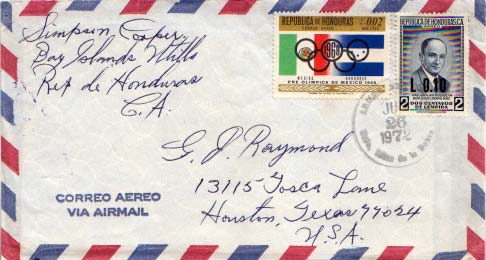 Simpson Cooper
Bay Islands Utila
Rep de Honduras
C.A.
REPUBLICA DE HONDURAS
L 0.02
1968
MEXICO HONDURAS
PRE OLIMPICA DE MEXICO 1968
REPUBLICA DE HONDURAS C.A.
L 0.10
2 DOS CENTAVOS DE LEMPIRA 2
26
1972
Islas de la Bahia
G. J. Raymond
13115 Tosca Lane
Houston, Texas 77024
U.S.A.
CORREO AEREO
VIA AIRMAIL